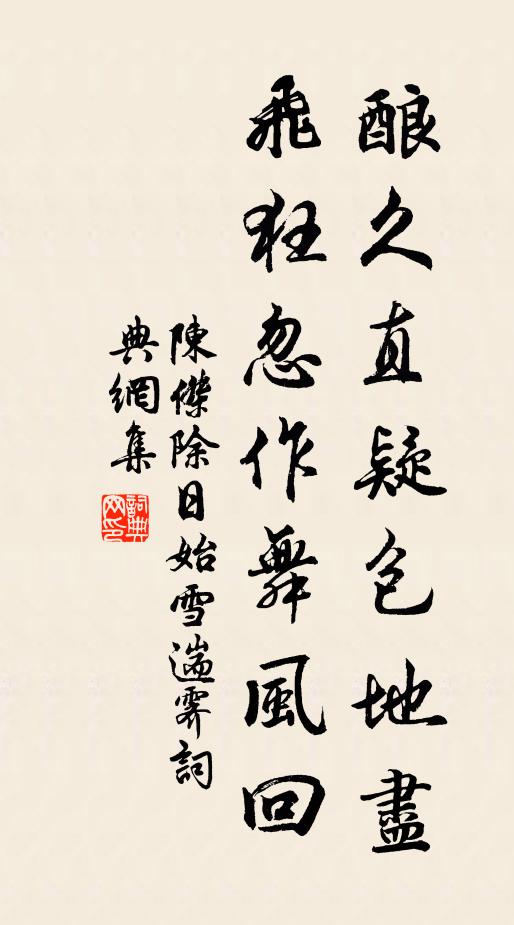 酿久直疑包地盡
飛狂忽作舞風回
陳傑除日始雪遄霽詞
典網集
詞典網印